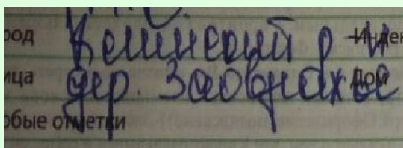 род Келинский р-н Индек
ица дер. Заовражье Дом
обые отметки